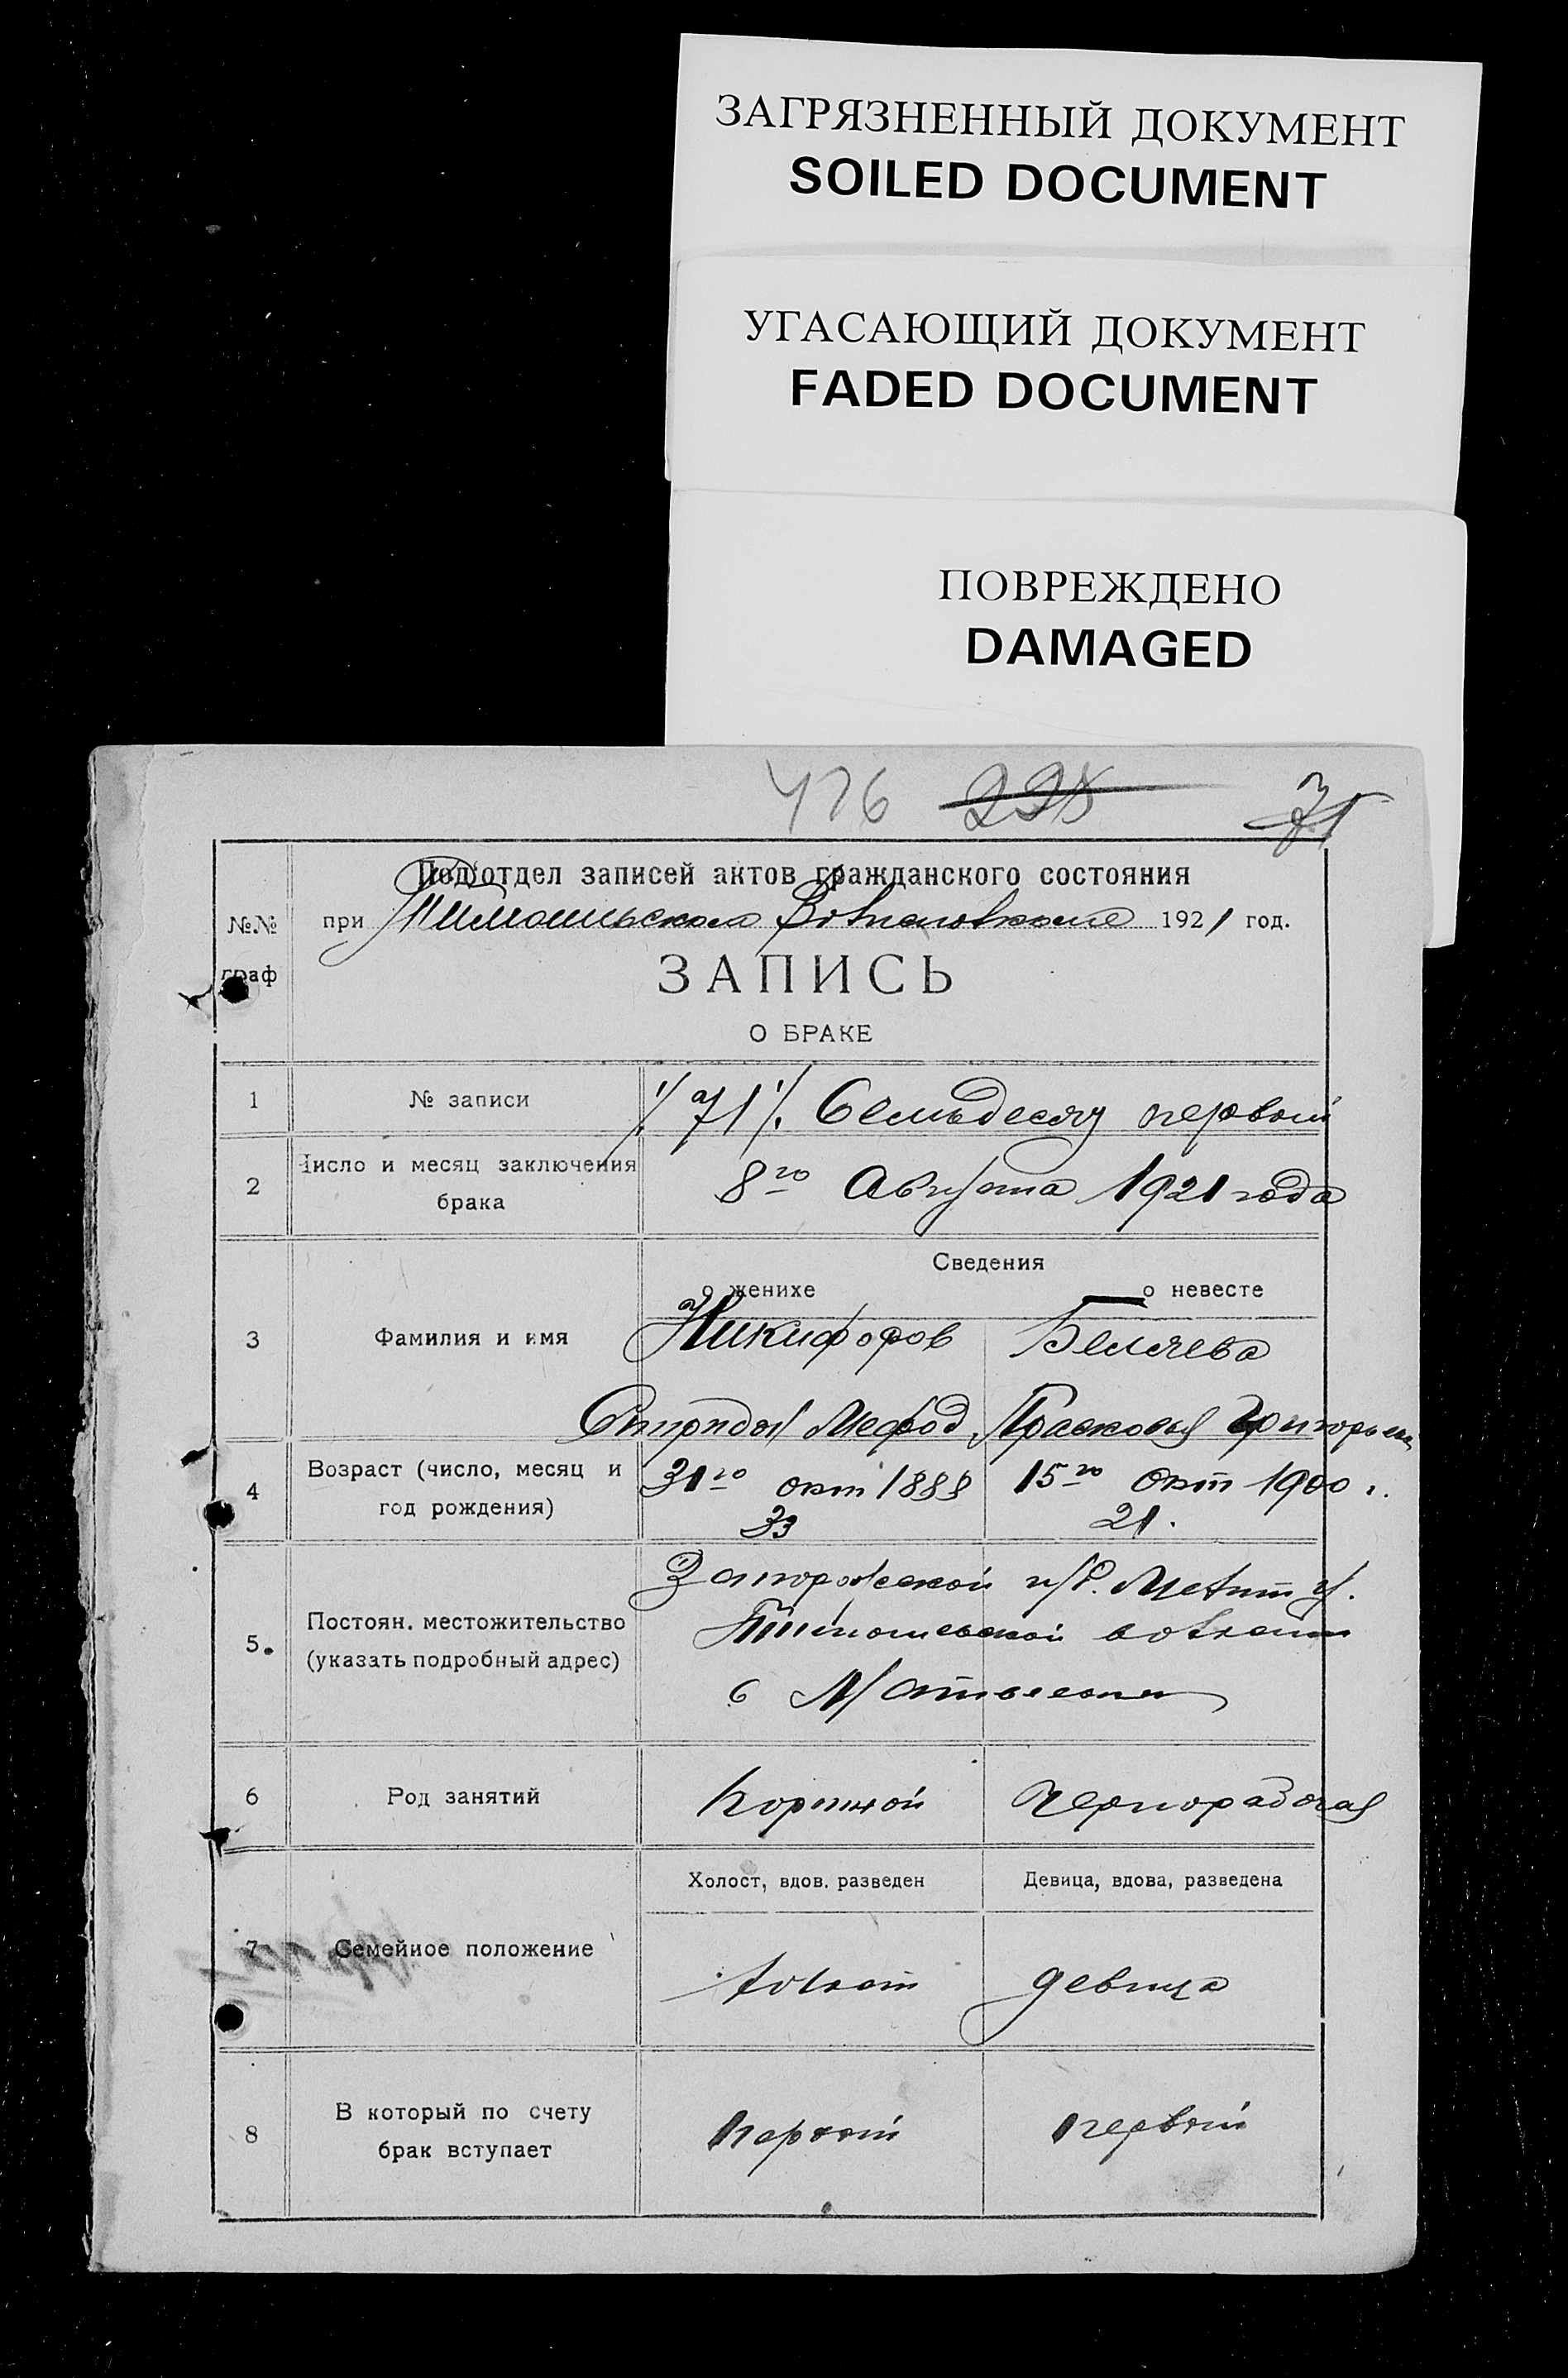 ЗАГРЯЗНЕННЫЙ ДОКУМЕНТ
SOILED DOCUMENT
УГАСАЮЩИЙ ДОКУМЕНТ
FADED DOCUMENT
ПОВРЕЖДЕНО
DAMAGED
476 228 71
Подотдел записей актов гражданского состояния
№№ граф
при 1921 год.
ЗАПИСЬ
О БРАКЕ
1 № записи 71 Семьдесят первый
2 Число и месяц заключения брака 8го Августа 1921 года
Сведения
о женихе о невесте
3 Фамилия и имя Никифоров Беляева
Спиридон Мефод Прасковья Григорьев
4 Возраст (число, месяц и год рождения) 31го окт 1888 15го Окт 1900 г.
33 21.
5. Постоян. местожительство (указать подробный адрес) Запорожской г/б. Мелит у.
волости
с
6 Род занятий Чернорабочая
Холост, вдов, разведен Девица, вдова, разведена
7 Семейное положение холост девица
8 В который по счету брак вступает первый первый